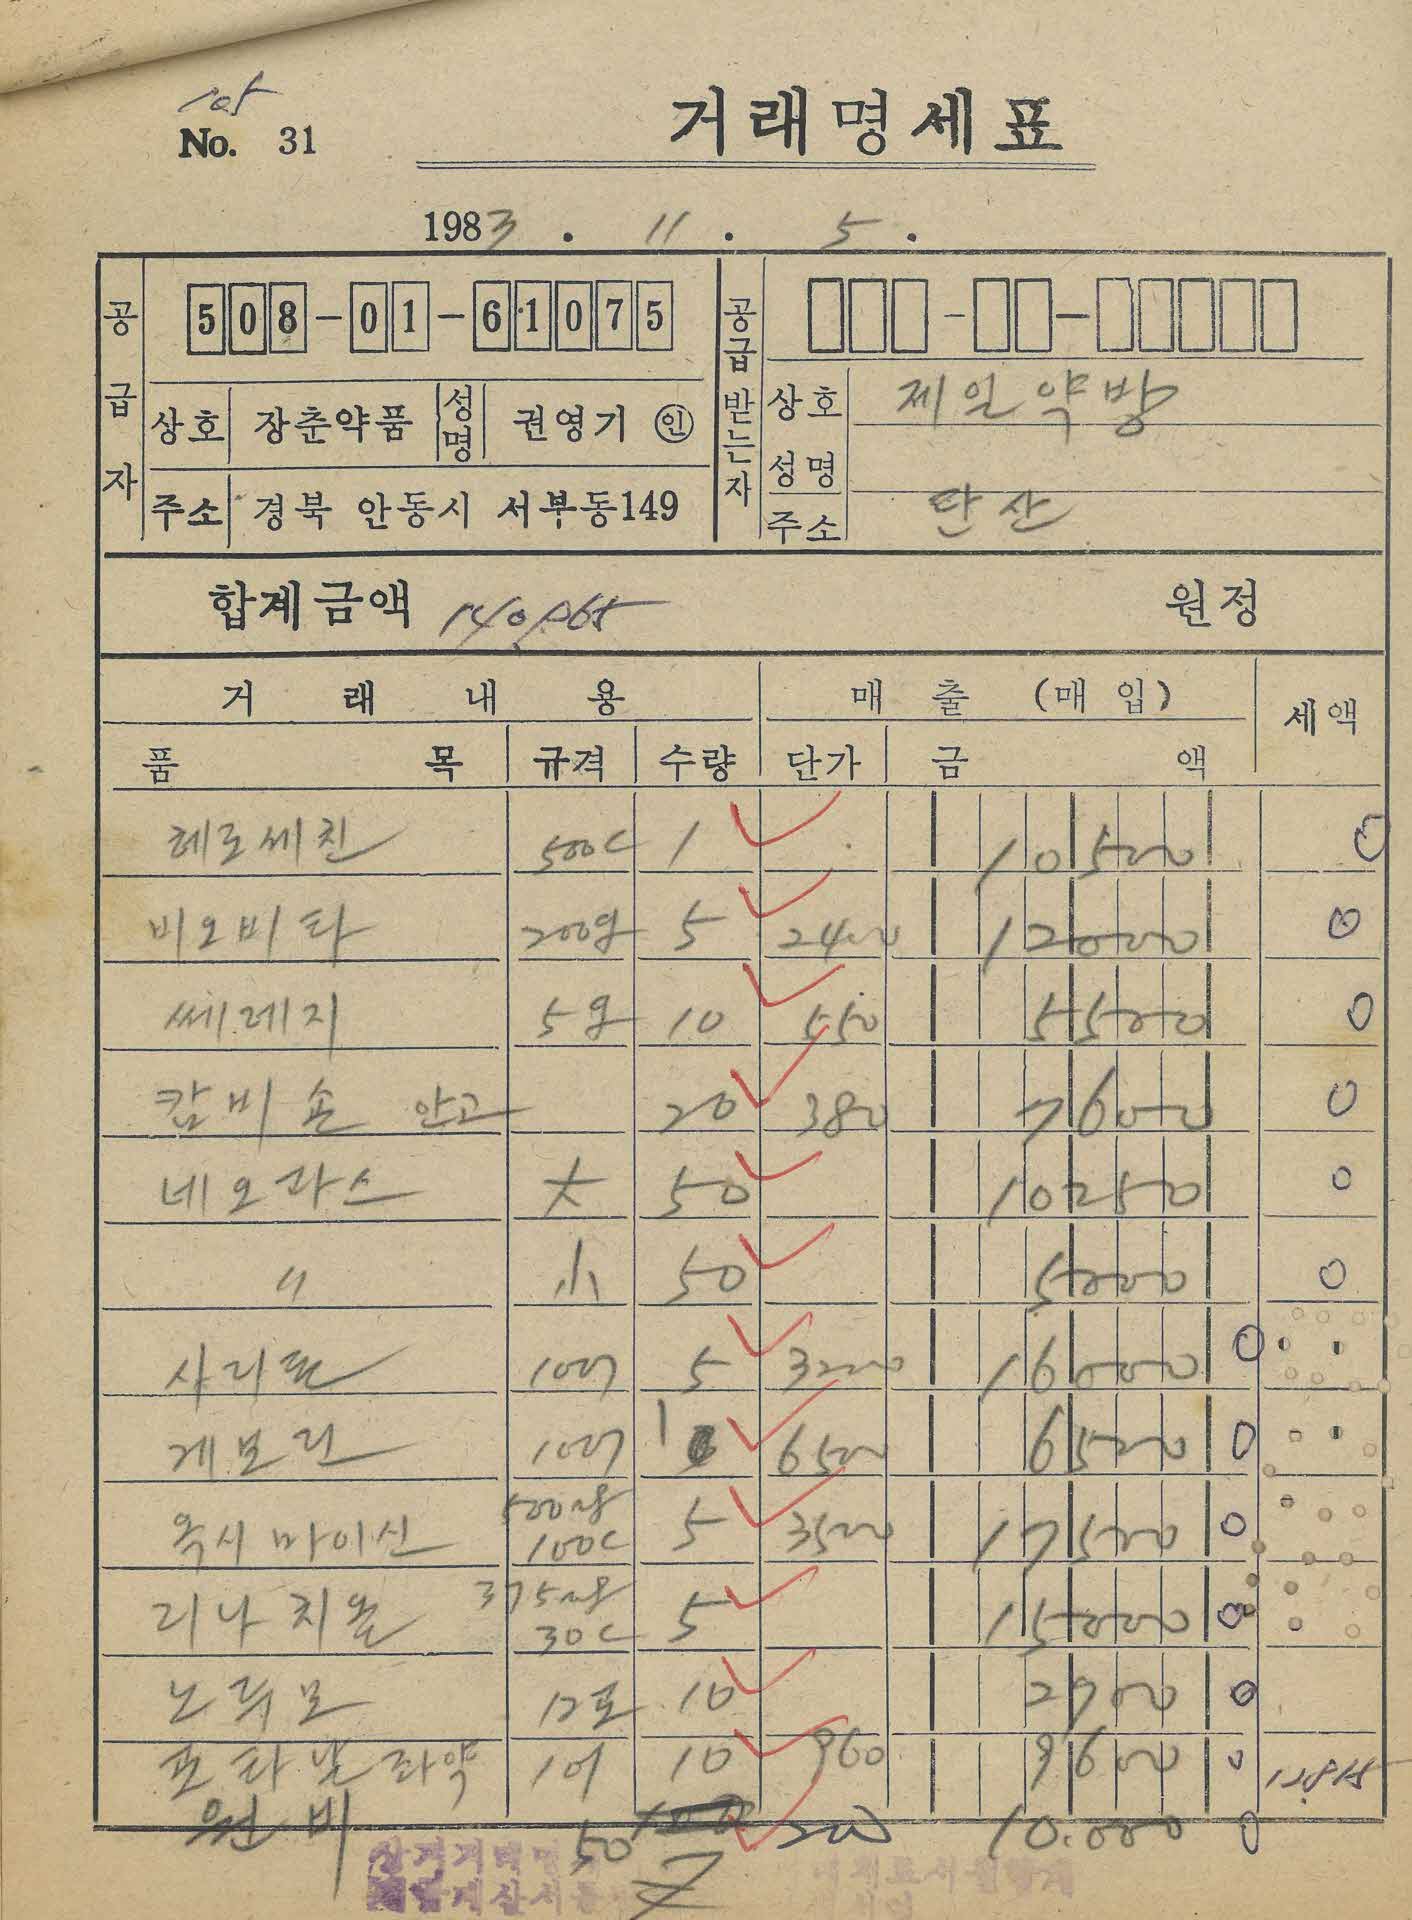 No. 31
거래명세표
1983 . 11 . 5 .
공급자
508-01-61075
상호 장춘약품 성명 권영기 ㊞
주소 경북 안동시 서부동149
공급받는자
상호 제일약방
성명
주소 단산
합계금액 원정
거래내용 매출(매입) 세액
품목 규격 수량 단가 금액
헤로세친 500C 1 10500 0
비오비타 200g 5 2400 12000 0
쎄레지 5g 10 550 5500 0
캄비손 안고 20 380 7600 0
네오라스 大 50 10250 0
〃 小 50 5000 0
사리돈 10T 5 3200 16000 0
게보린 10T 1 6500 6500 0
옥시마이신 100C 5 3500 17500 0
리나치올 375 30C 5 15000 0
노루모 12포 10 2900 0
포타날좌약 10T 10 960 9600 0 12815
원비 50 200 10.000 0